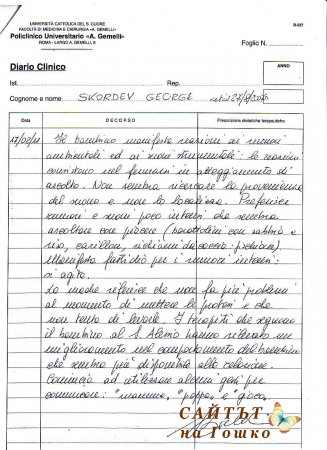 UNIVERSITÀ CATTOLICA DEL S. CUORE
FACOLTÀ DI MEDICINA E CHIRURGIA «A. GEMELLI»
Policlinico Universitario «A. Gemelli»
ROMA - LARGO A. GEMELLI, 8
Foglio N.
Diario Clinico
ANNO
Ist. Rep.
Cognome e nome SKORDEV GEORGE
Data
DECORSO
Prescrizione dietetiche terapeutiche
Il bambino manifesta reazioni ai rumori
ambientali ed ai suoni strumentali: le reazioni
consistono nel fermarsi in atteggiamento di
ascolto. Non sembra ricercare la provenienza
del suono e non lo localizza. Preferisce
rumori e suoni poco intensi che sembra
ascoltare con piacere (barattolini con sabbia e
riso, carillon, richiami da caccia: pulcino).
Manifesta fastidio per i rumori intensi:
si agita.
La madre riferisce che non fa più problemi
al momento di mettere le protesi e che
non tenta di levarle. I terapisti che seguono
il bambino al S. Alessio hanno riferito un
miglioramento nel comportamento del bambino
che sembra più disponibile alla relazione.
Comincia ad utilizzare alcuni gesti per
comunicare: "mamma, pappa e gioco"
САЙТЪТ
на Гошко